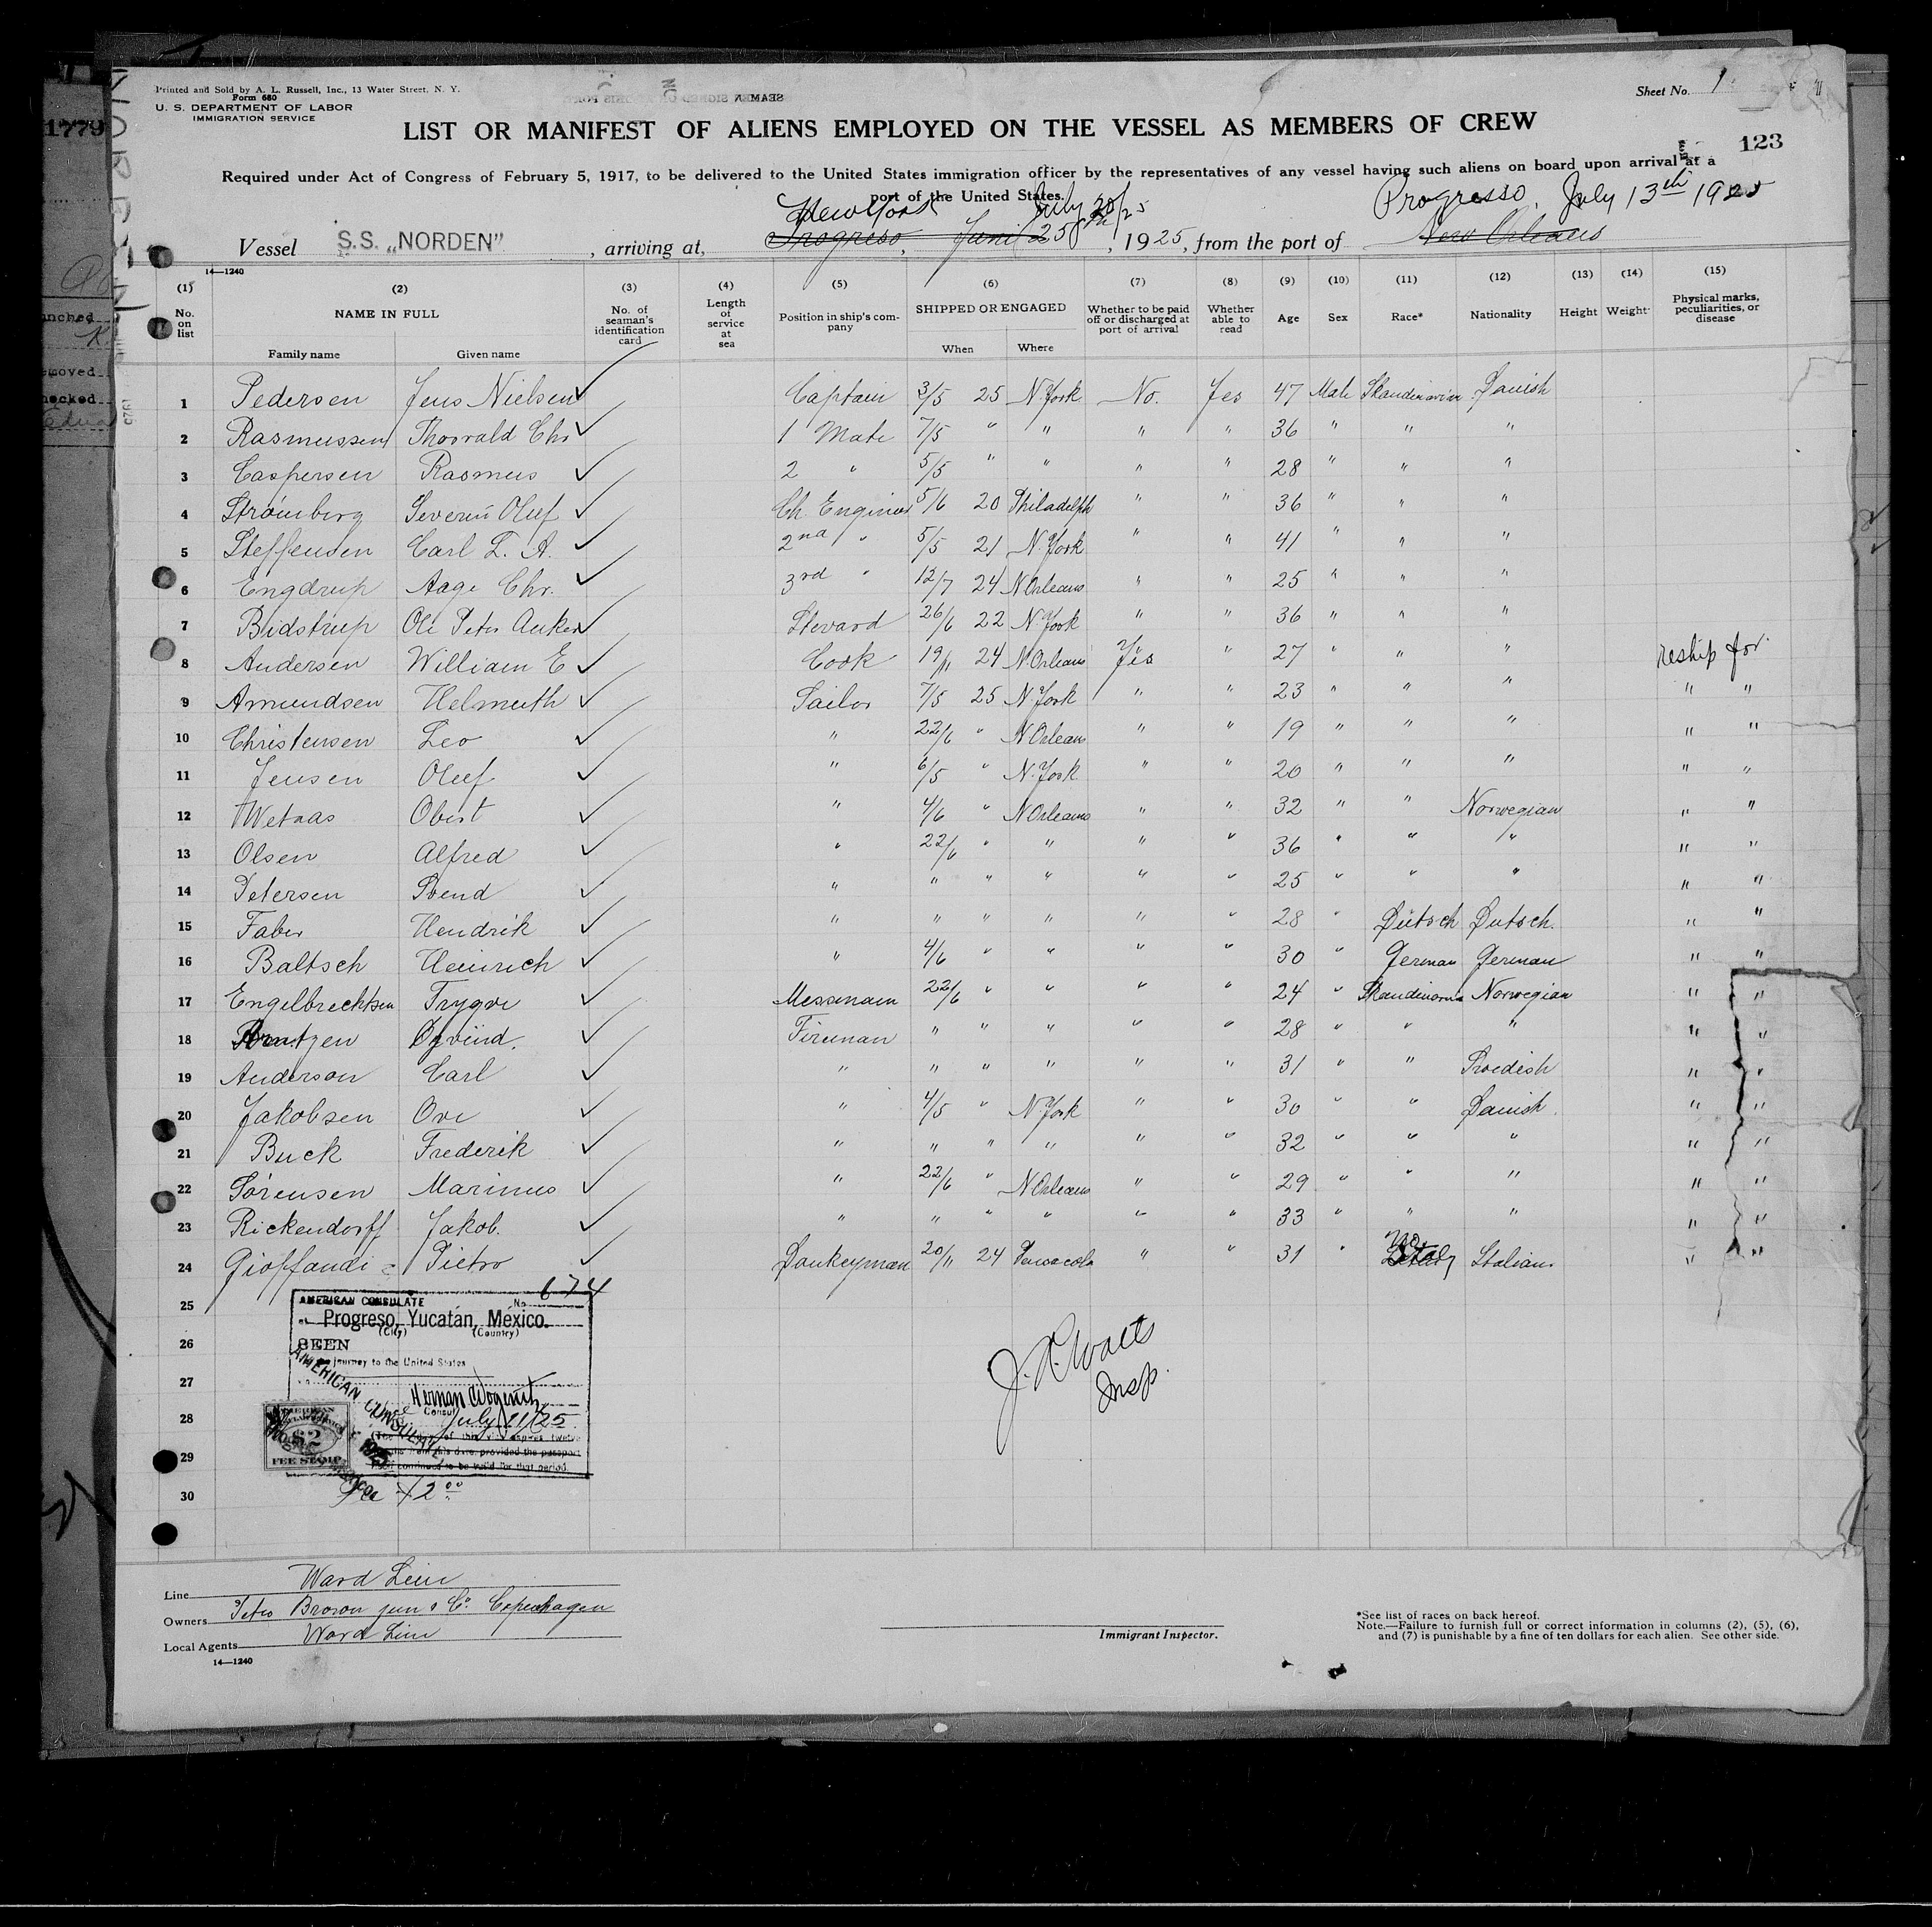 Printed and Sold by A. L. Russell, Inc., 13 Water Street, N. Y.
Form 680
U. S. DEPARTMENT OF LABOR
IMMIGRATION SERVICE
Sheet No. 1
1779
123
LIST OR MANIFEST OF ALIENS EMPLOYED ON THE VESSEL AS MEMBERS OF CREW
Required under Act of Congress of February 5, 1917, to be delivered to the United States immigration officer by the representatives of any vessel having such aliens on board upon arrival at a
port of the United States.
New York July 20/25 Progresso, July 13th 1925
Vessel S.S. „NORDEN” , arriving at, Progreso, Juni 25th, 1925, from the port of New Orleans
14—1240
(1) (2) (3) (4) (5) (6) (7) (8) (9) (10) (11) (12) (13) (14) (15)
No. on list NAME IN FULL Family name Given name No. of seaman's identification card Length of service at sea Position in ship's company SHIPPED OR ENGAGED When Where Whether to be paid off or discharged at port of arrival Whether able to read Age Sex Race* Nationality Height Weight Physical marks, peculiarities, or disease
1 Pedersen Jens Nielsen ✓ Captain 3/5 25 N. York No. Yes 47 Male Skandinavian Danish
2 Rasmussen Thorvald Chr ✓ 1 Mate 7/5 " " " " 36 " " "
3 Caspersen Rasmus ✓ 2 " 5/5 " " " " 28 " " "
4 Strömberg Severin Oluf ✓ Ch. Engineer 5/6 20 Philadelph " " 36 " " "
5 Steffensen Carl L. A. ✓ 2nd " 5/5 21 N. York " " 41 " " "
6 Engdrup Aage Chr. ✓ 3rd " 12/7 24 N Orleans " " 25 " " "
7 Bidstrup Ole Peter Anker ✓ Stevard 26/6 22 N. York " " 36 " " "
8 Andersen William E ✓ Cook 19/11 24 N. Orleans Yes " 27 " " " reship for
9 Amundsen Helmuth ✓ Sailor 7/5 25 N. York " " 23 " " " " "
10 Christensen Leo ✓ " 22/6 " N Orleans " " 19 " " " " "
11 Jensen Oluf ✓ " 6/5 " N. York " " 20 " " " " "
12 Wetaas Obert ✓ " 4/6 " N Orleans " " 32 " " Norwegian " "
13 Olsen Alfred ✓ " 22/6 " " " " 36 " " " " "
14 Petersen Svend ✓ " " " " " " 25 " " " " "
15 Faber Hendrik ✓ " " " " " " 28 " Dutsch Dutsch. " "
16 Baltsch Heinrich ✓ " 4/6 " " " " 30 " German German " "
17 Engelbrechtsen Trygve ✓ Messmann 22/6 " " " " 24 " Skandinavia Norwegian " "
18 Arntzen Øyvind. ✓ Fireman " " " " " 28 " " " " "
19 Anderson Carl ✓ " " " " " " 31 " " Swedish " "
20 Jakobsen Ove ✓ " 4/5 " N. York " " 30 " " Danish. " "
21 Buck Frederik ✓ " " " " " " 32 " " " " "
22 Sörensen Marinus ✓ " 22/6 " N Orleans " " 29 " " " " "
23 Rickendorff Jakob. ✓ " " " " " " 33 " " " " "
24 Gioffandi Pietro ✓ Donkeyman 20/11 24 Pensacola " " 31 " Italian " "
25
26
27
28
29
30
AMERICAN CONSULATE No. 674
at Progreso, Yucatán, Mexico.
(City) (Country)
SEEN
journey to the United States
Consul
July 11/25
AMERICAN CONSULATE
$2
FEE STAMP
from this date, provided the passport
continued to be valid for that period.
Fee $ 2 00
Insp.
Line Ward Line
Owners Peter Brown jun & Co. Copenhagen
Local Agents Ward Line
14—1240
Immigrant Inspector.
*See list of races on back hereof.
Note.—Failure to furnish full or correct information in columns (2), (5), (6),
and (7) is punishable by a fine of ten dollars for each alien. See other side.